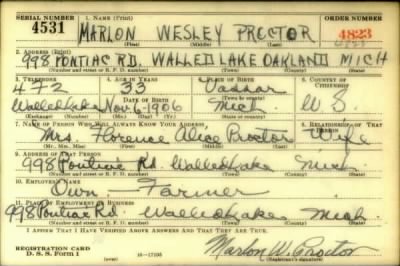 SERIAL NUMBER 1. NAME (Print) ORDER NUMBER
4531 MARLON WESLEY PROCTOR 4823
(First) (Middle) (Last)
2. ADDRESS (Print)
998 PONTIAC RD. WALLED LAKE OAKLAND MICH
(Number and street or R. F. D. number) (Town) (County) (State)
3. TELEPHONE 4. AGE IN YEARS 5. PLACE OF BIRTH 6. COUNTRY OF CITIZENSHIP
472 33 Vassar
DATE OF BIRTH (Town or county)
Walled Lake Nov 6, 1906 Mich. U S.
(Exchange) (Number) (Mo.) (Day) (Yr.) (State or country)
7. NAME OF PERSON WHO WILL ALWAYS KNOW YOUR ADDRESS 8. RELATIONSHIP OF THAT PERSON
Mrs Florence Alice Proctor Wife
(Mr., Mrs., Miss) (First) (Middle) (Last)
9. ADDRESS OF THAT PERSON
998 Pontiac Rd Walled Lake Mich
(Number and street or R. F. D. number) (Town) (County) (State)
10. EMPLOYER'S NAME
Own. Farmer
11. PLACE OF EMPLOYMENT OR BUSINESS
998 Pontiac Rd. Walled Lake Mich
(Number and street or R. F. D. number) (Town) (County) (State)
I AFFIRM THAT I HAVE VERIFIED ABOVE ANSWERS AND THAT THEY ARE TRUE.
REGISTRATION CARD
D. S. S. Form 1 16—17105 Marlon W. Proctor
(over) (Registrant's signature)